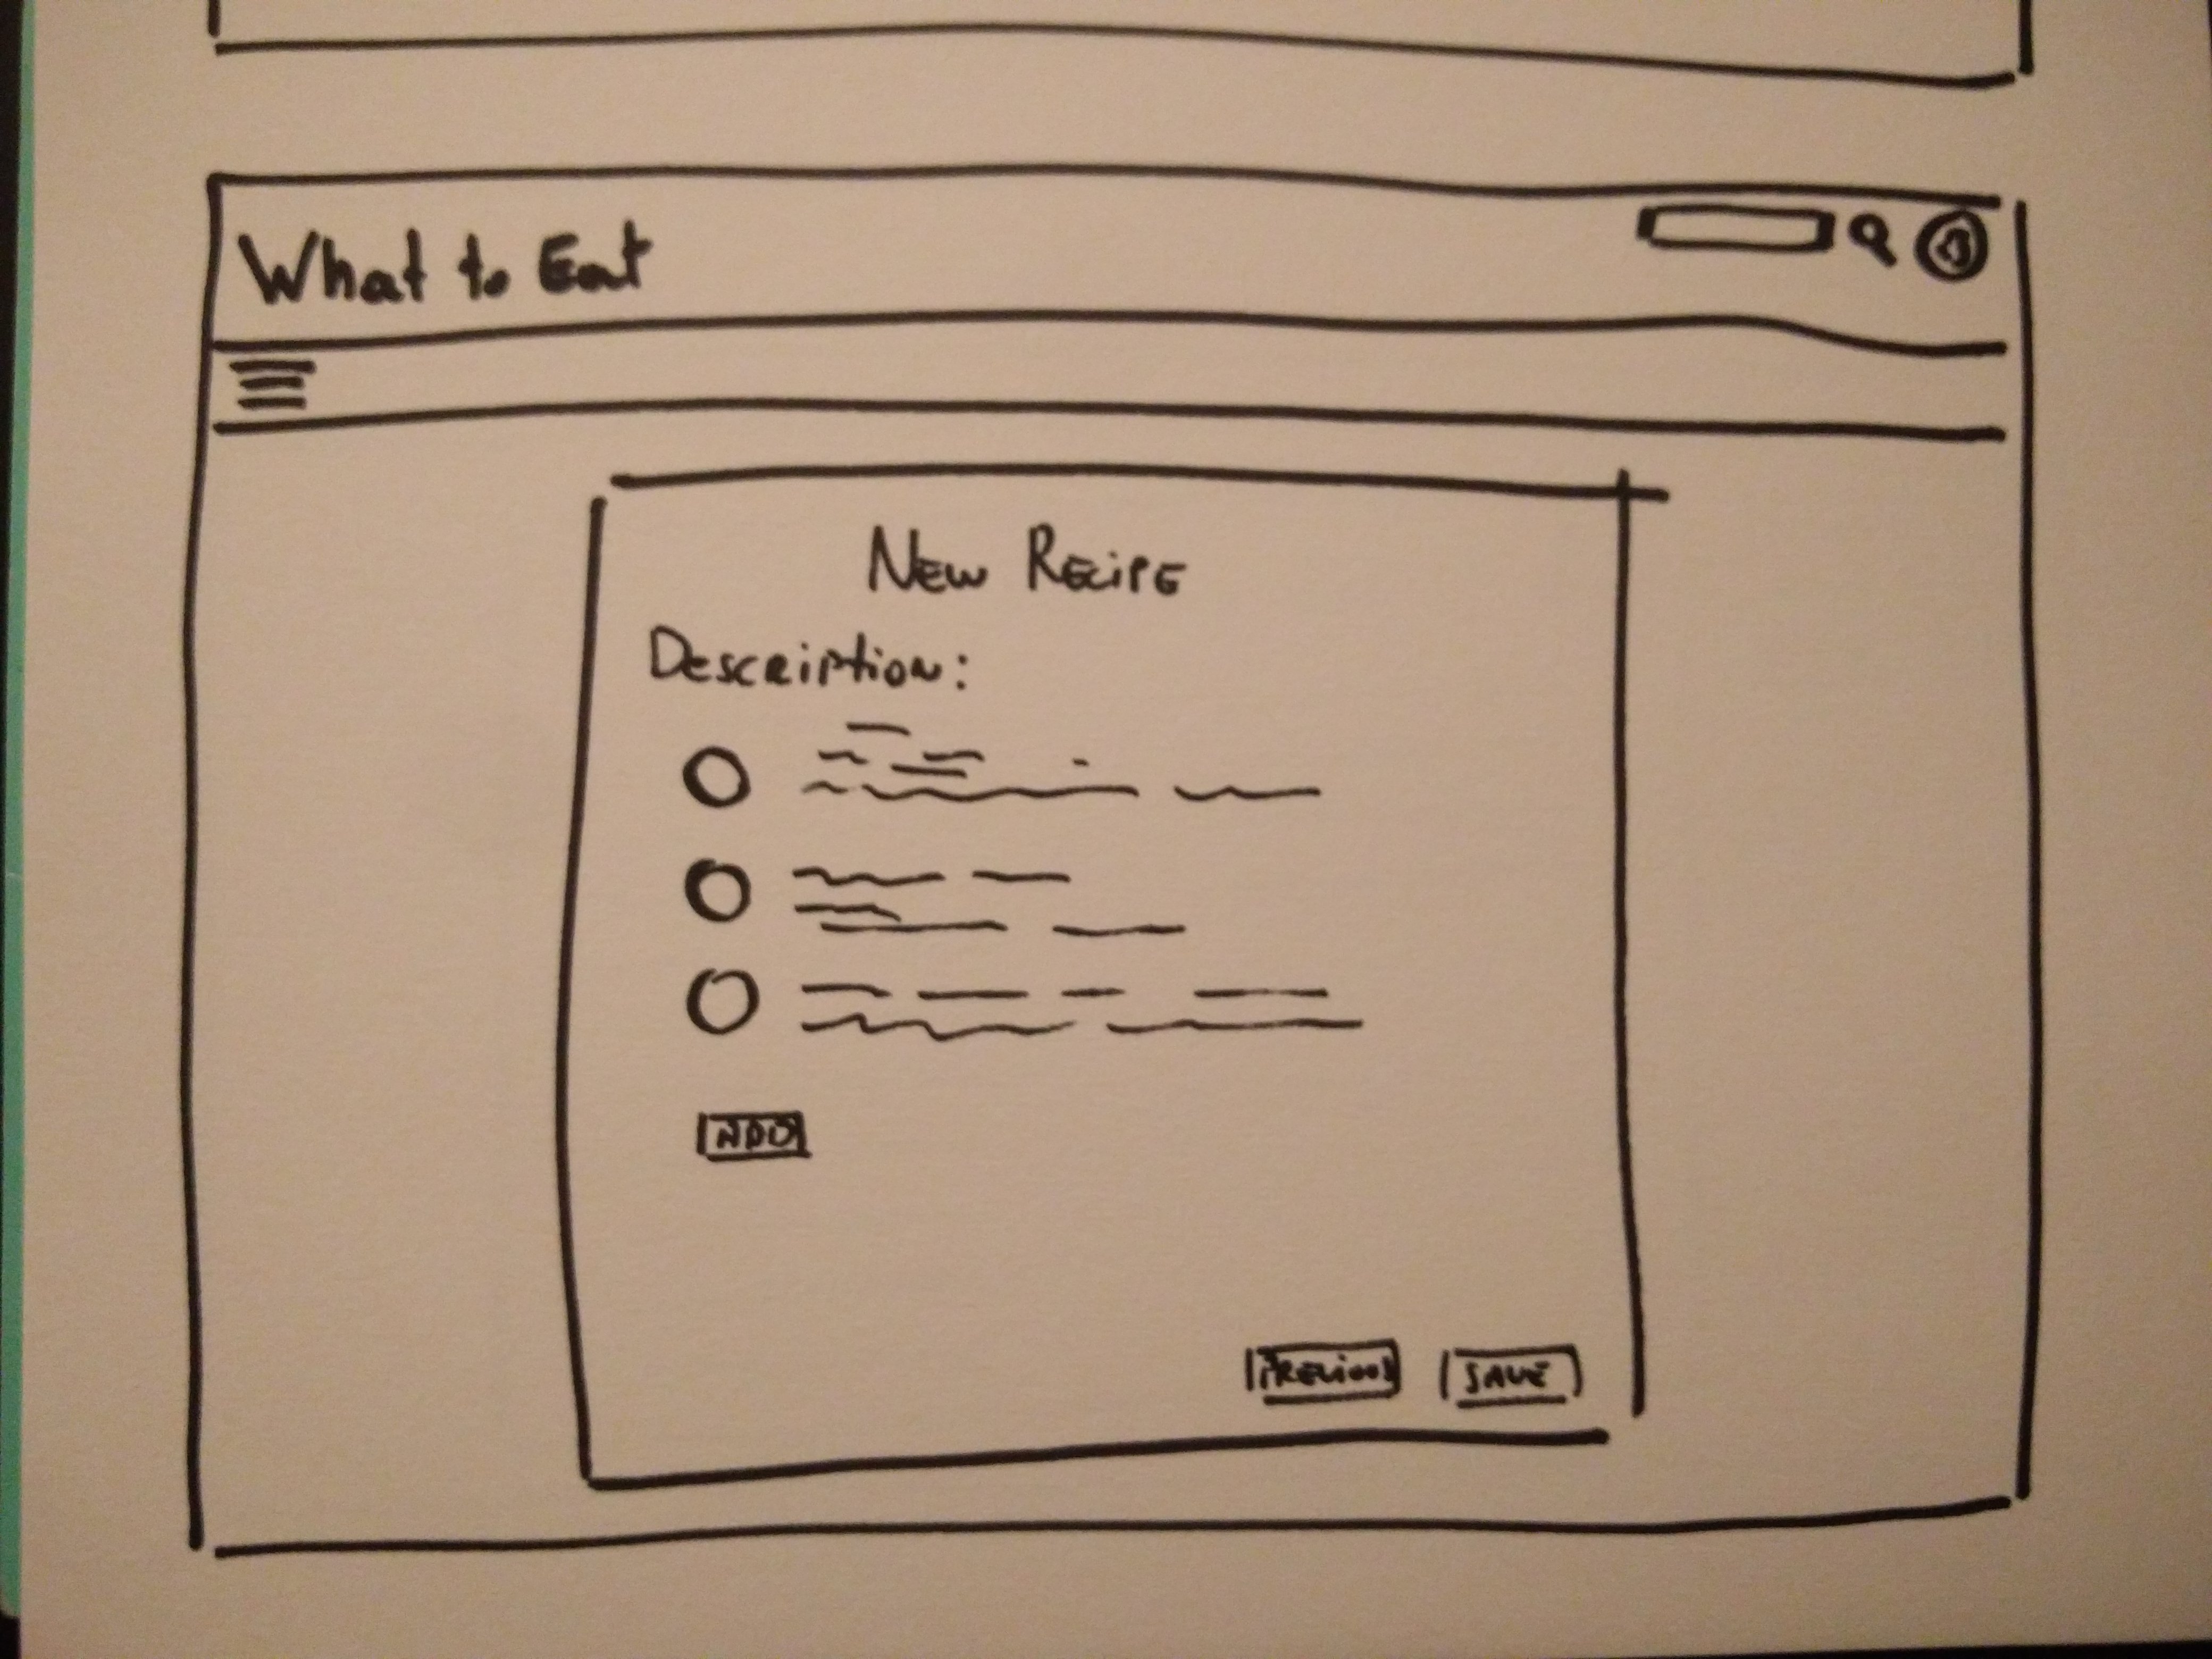 What to Eat
New Recipe
Description:
ADD
Previous
SAVE